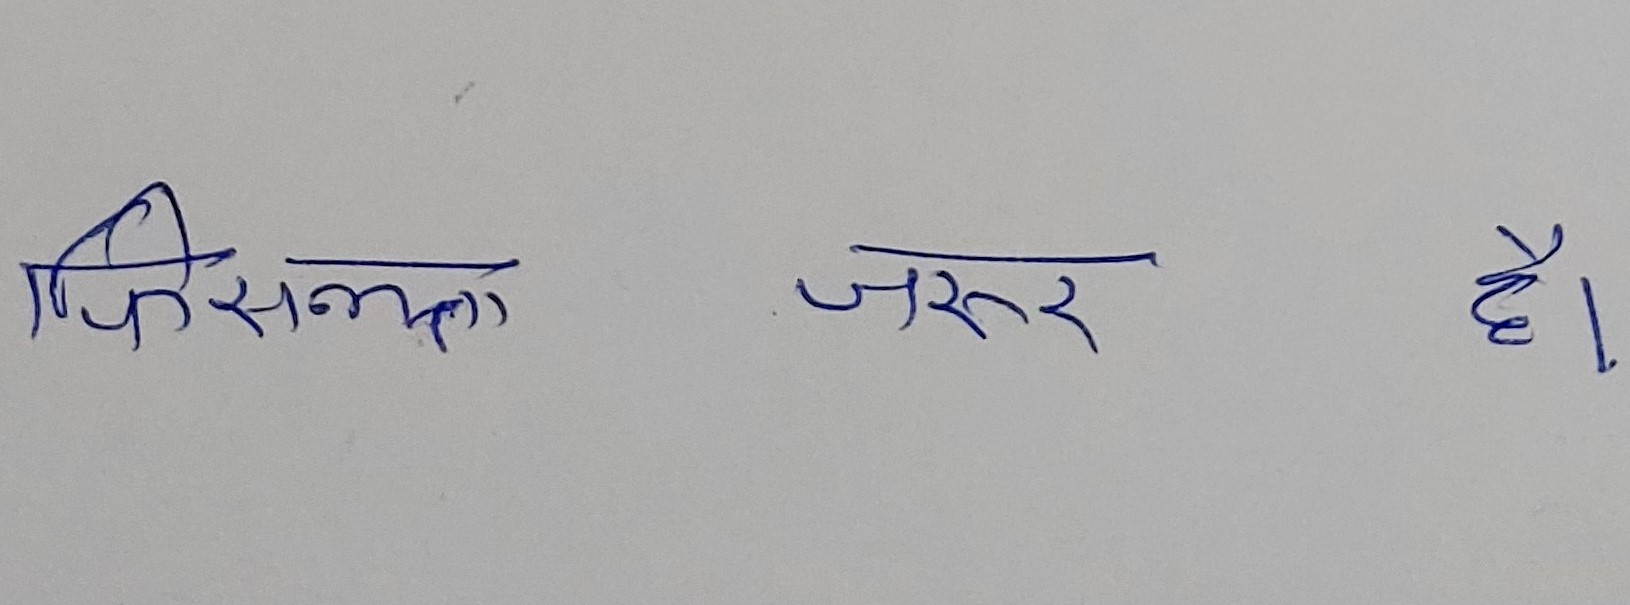 फिसलना जरूर है।